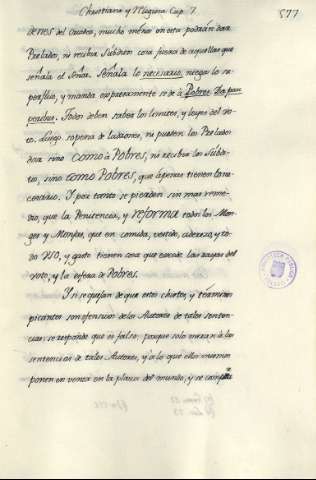 Christiana y Magica Cap. 7.
577
deres del Cauto, mucho menos en esta podrán dar a
Prelados, ni recibir Subditos cosa fuera de aquello que
señala el Señor. Señala lo necesario, niega lo su-
perfluo, y manda expresamente se de a Pobres Da pau
peribus. Todos deben saber los limites, y leyes del vo-
to. Luego so pena de ladrones, ni pueden los Prelados
dar sino como à Pobres, ni recibir los Subdi-
tos, sino como Pobres, que apenas tienen lo ne-
cesario. Y por tanto se pierden sin mas reme-
dio, que la Penitencia, y reforma todos los Mon-
ges y Monjas, que en comida, vestido, aderezo, y to-
do uso, y gasto tienen cosa que exceda las rayas del
voto, y la esfera de Pobres.
Y si se quejan de que estos chistes, y
picantes son ofensivos de los Autores de tales senten-
cias: se responde que es falso, porque solo miran à las
sentencias de tales Autores, y à lo que ellos mismos
ponen en venta en la plaza del mundo, y se